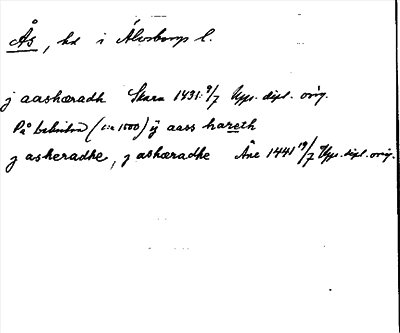 Ås, hd i Älvsborgs l.
j aashæradh Skara 1431 9/7 Upps. dipl. orig.
På baksidan (c:a 1500) ÿ aass hareth
j asheradhe, j ashæradhe Åre 1441 19/7 Upps. dipl. orig.